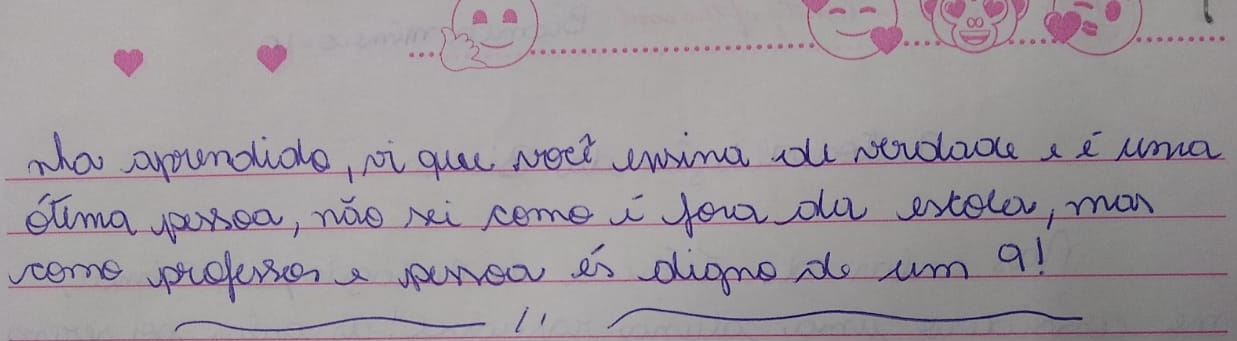 nha aprendido, vi que você ensina de verdade e é uma
ótima pessoa, não sei como é fora da escola, mas
como professor e pessoa és digno de um 9!